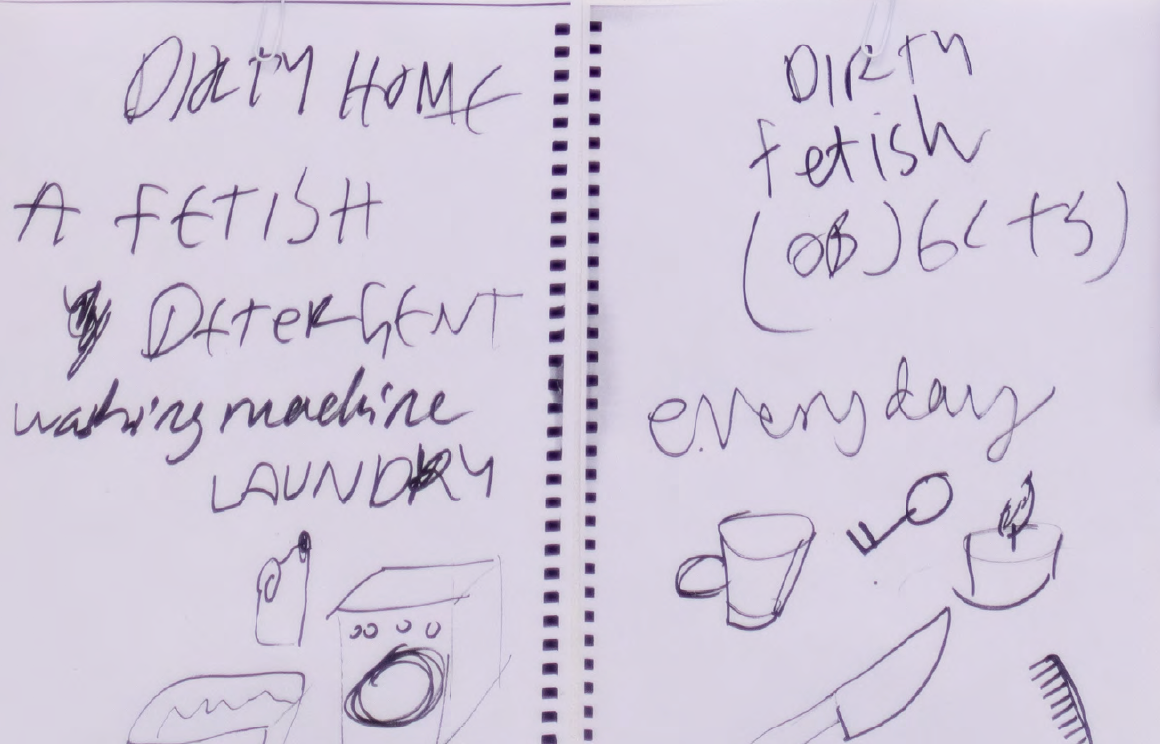 DIRTY HOME
A FETISH
DETERGENT
washing machine
LAUNDRY
DIRTY
fetish
(OBJECTS)
everyday